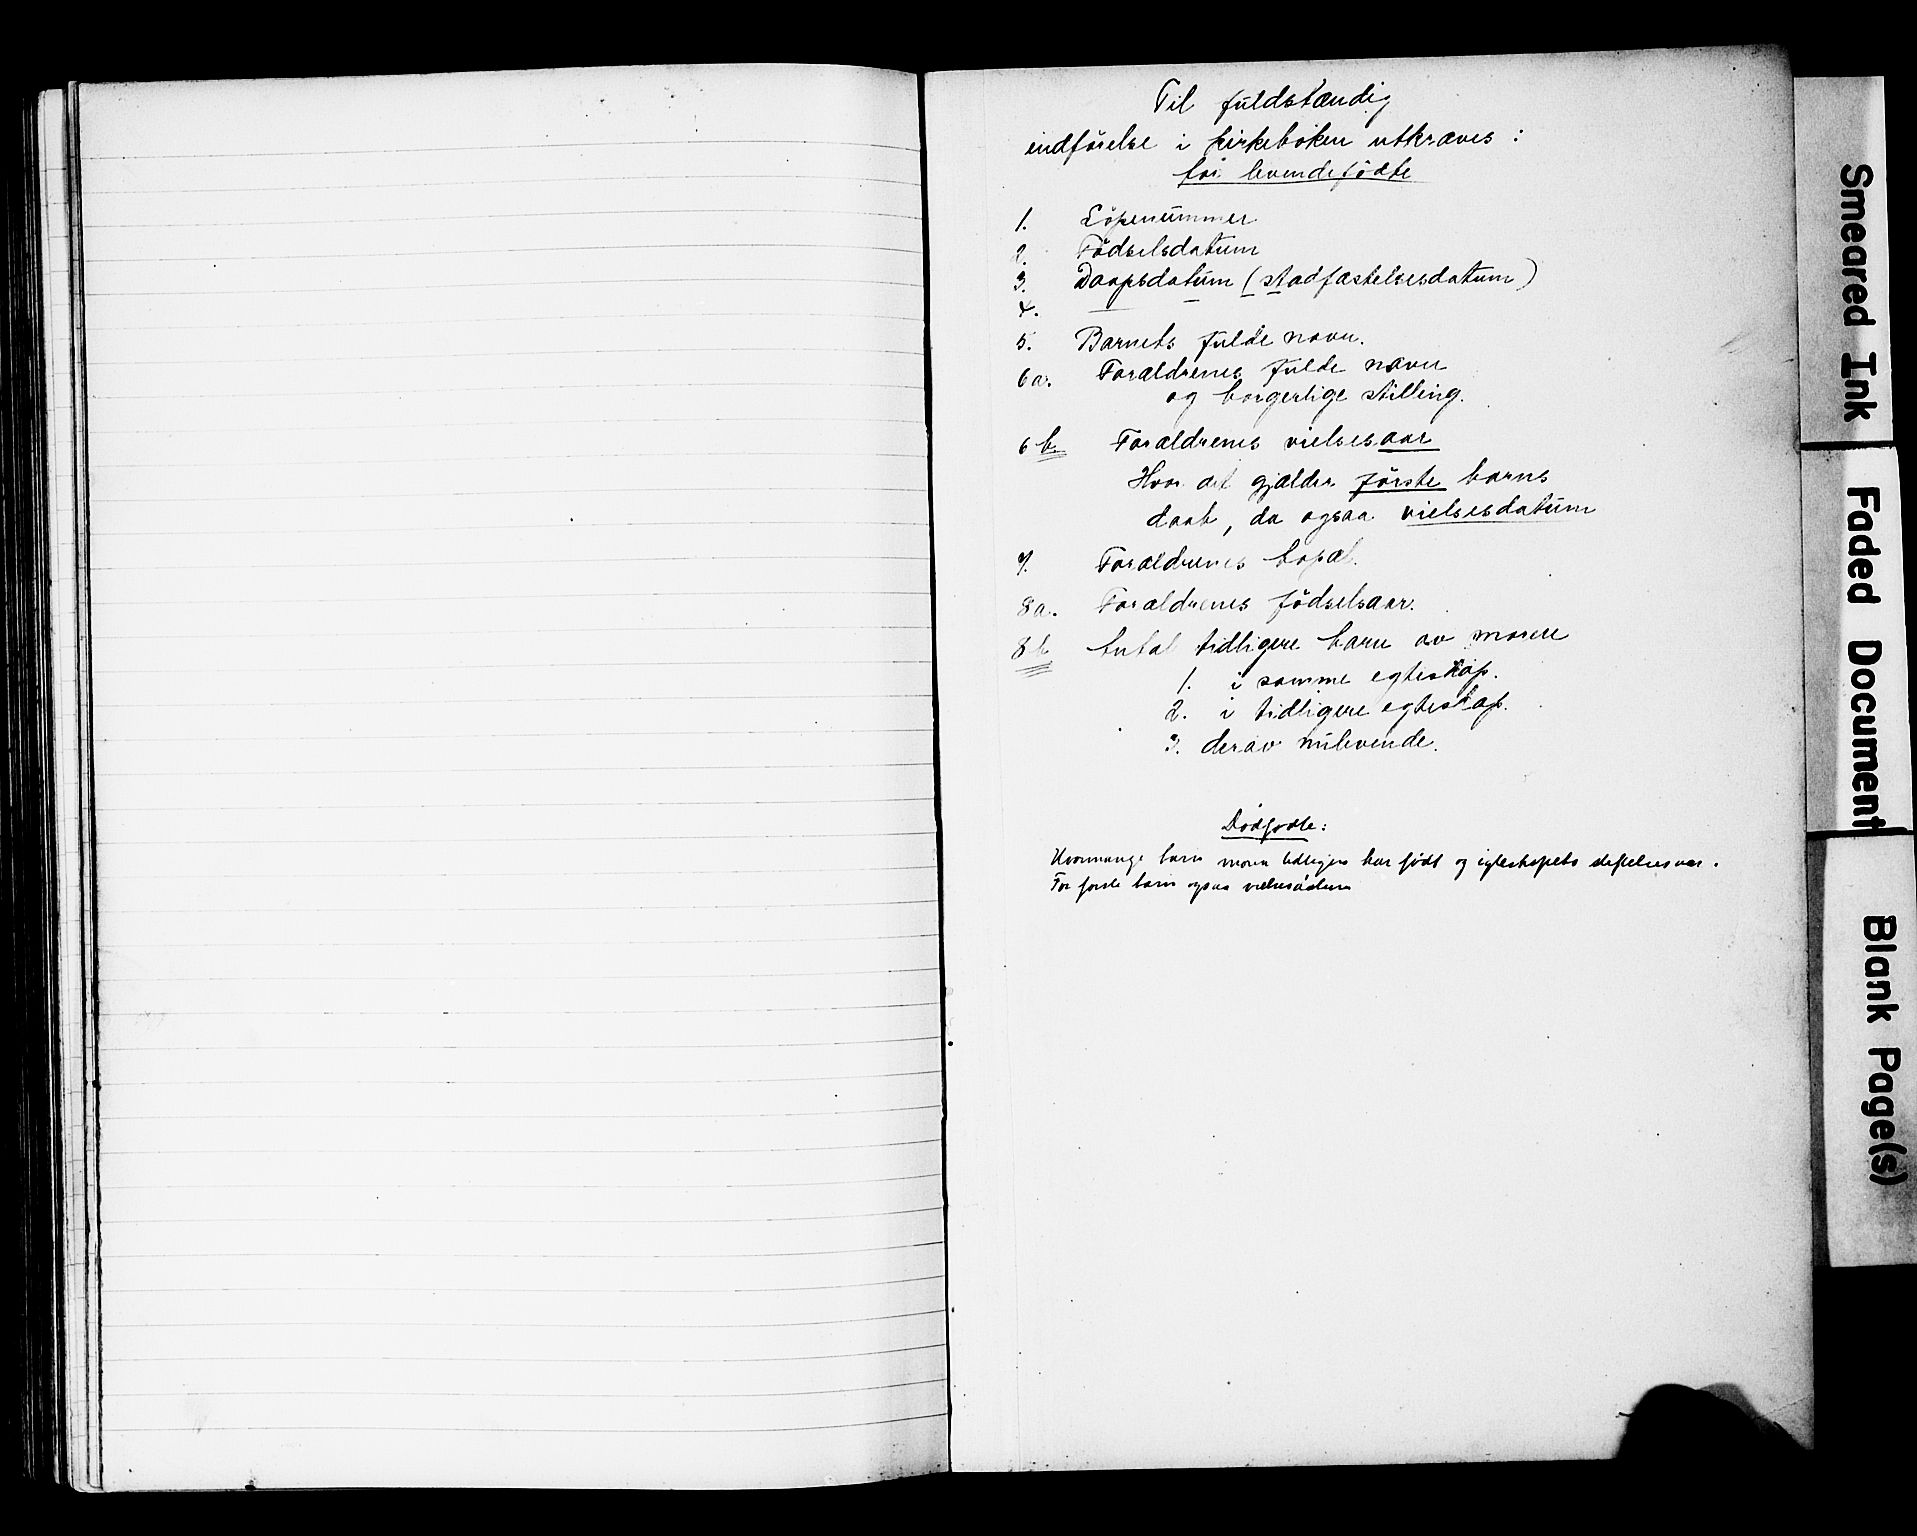 Til fuldstændig
indførelse i kirkeboken utkræves :
for levendefödte
1. Löpenummer
2. Fødselsdatum
3. Daapsdatum ( stadfæstelsesdatum )
4.
5. Barnets fulde navn.
6a. Forældrenes fulde navn
og borgerlige stilling.
6 b. Forældrenes vielsesaar
Hvor det gjælder förste barns
daab, da ogsaa vielsesdatum
7. Forældrenes bopæl.
8a. Forældrenes födselsaar.
8b Antal tidligere barn av moren
1. i samme egteskap.
2. i tidligere egteskap.
3. derav nulevende.
Dödfödte:
Hvormange barn moren tidligere har födt og egteskapets stiftelsesaar.
For förste barn ogsaa
Smeared Ink
Faded Document
Blank Page(s)